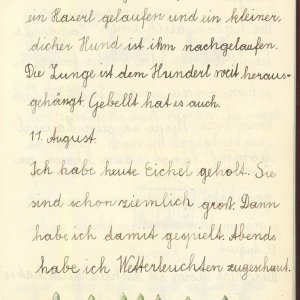 ein Haserl gelaufen und ein kleiner,
dicker Hund ist ihm nachgelaufen.
Die Zunge ist dem Hunderl weit heraus-
gehängt. Gebellt hat es auch.
11. August.
Ich habe heute Eichel geholt. Sie
sind schon ziemlich groß. Dann
habe ich damit gespielt. Abends
habe ich Wetterleuchten zugeschaut.